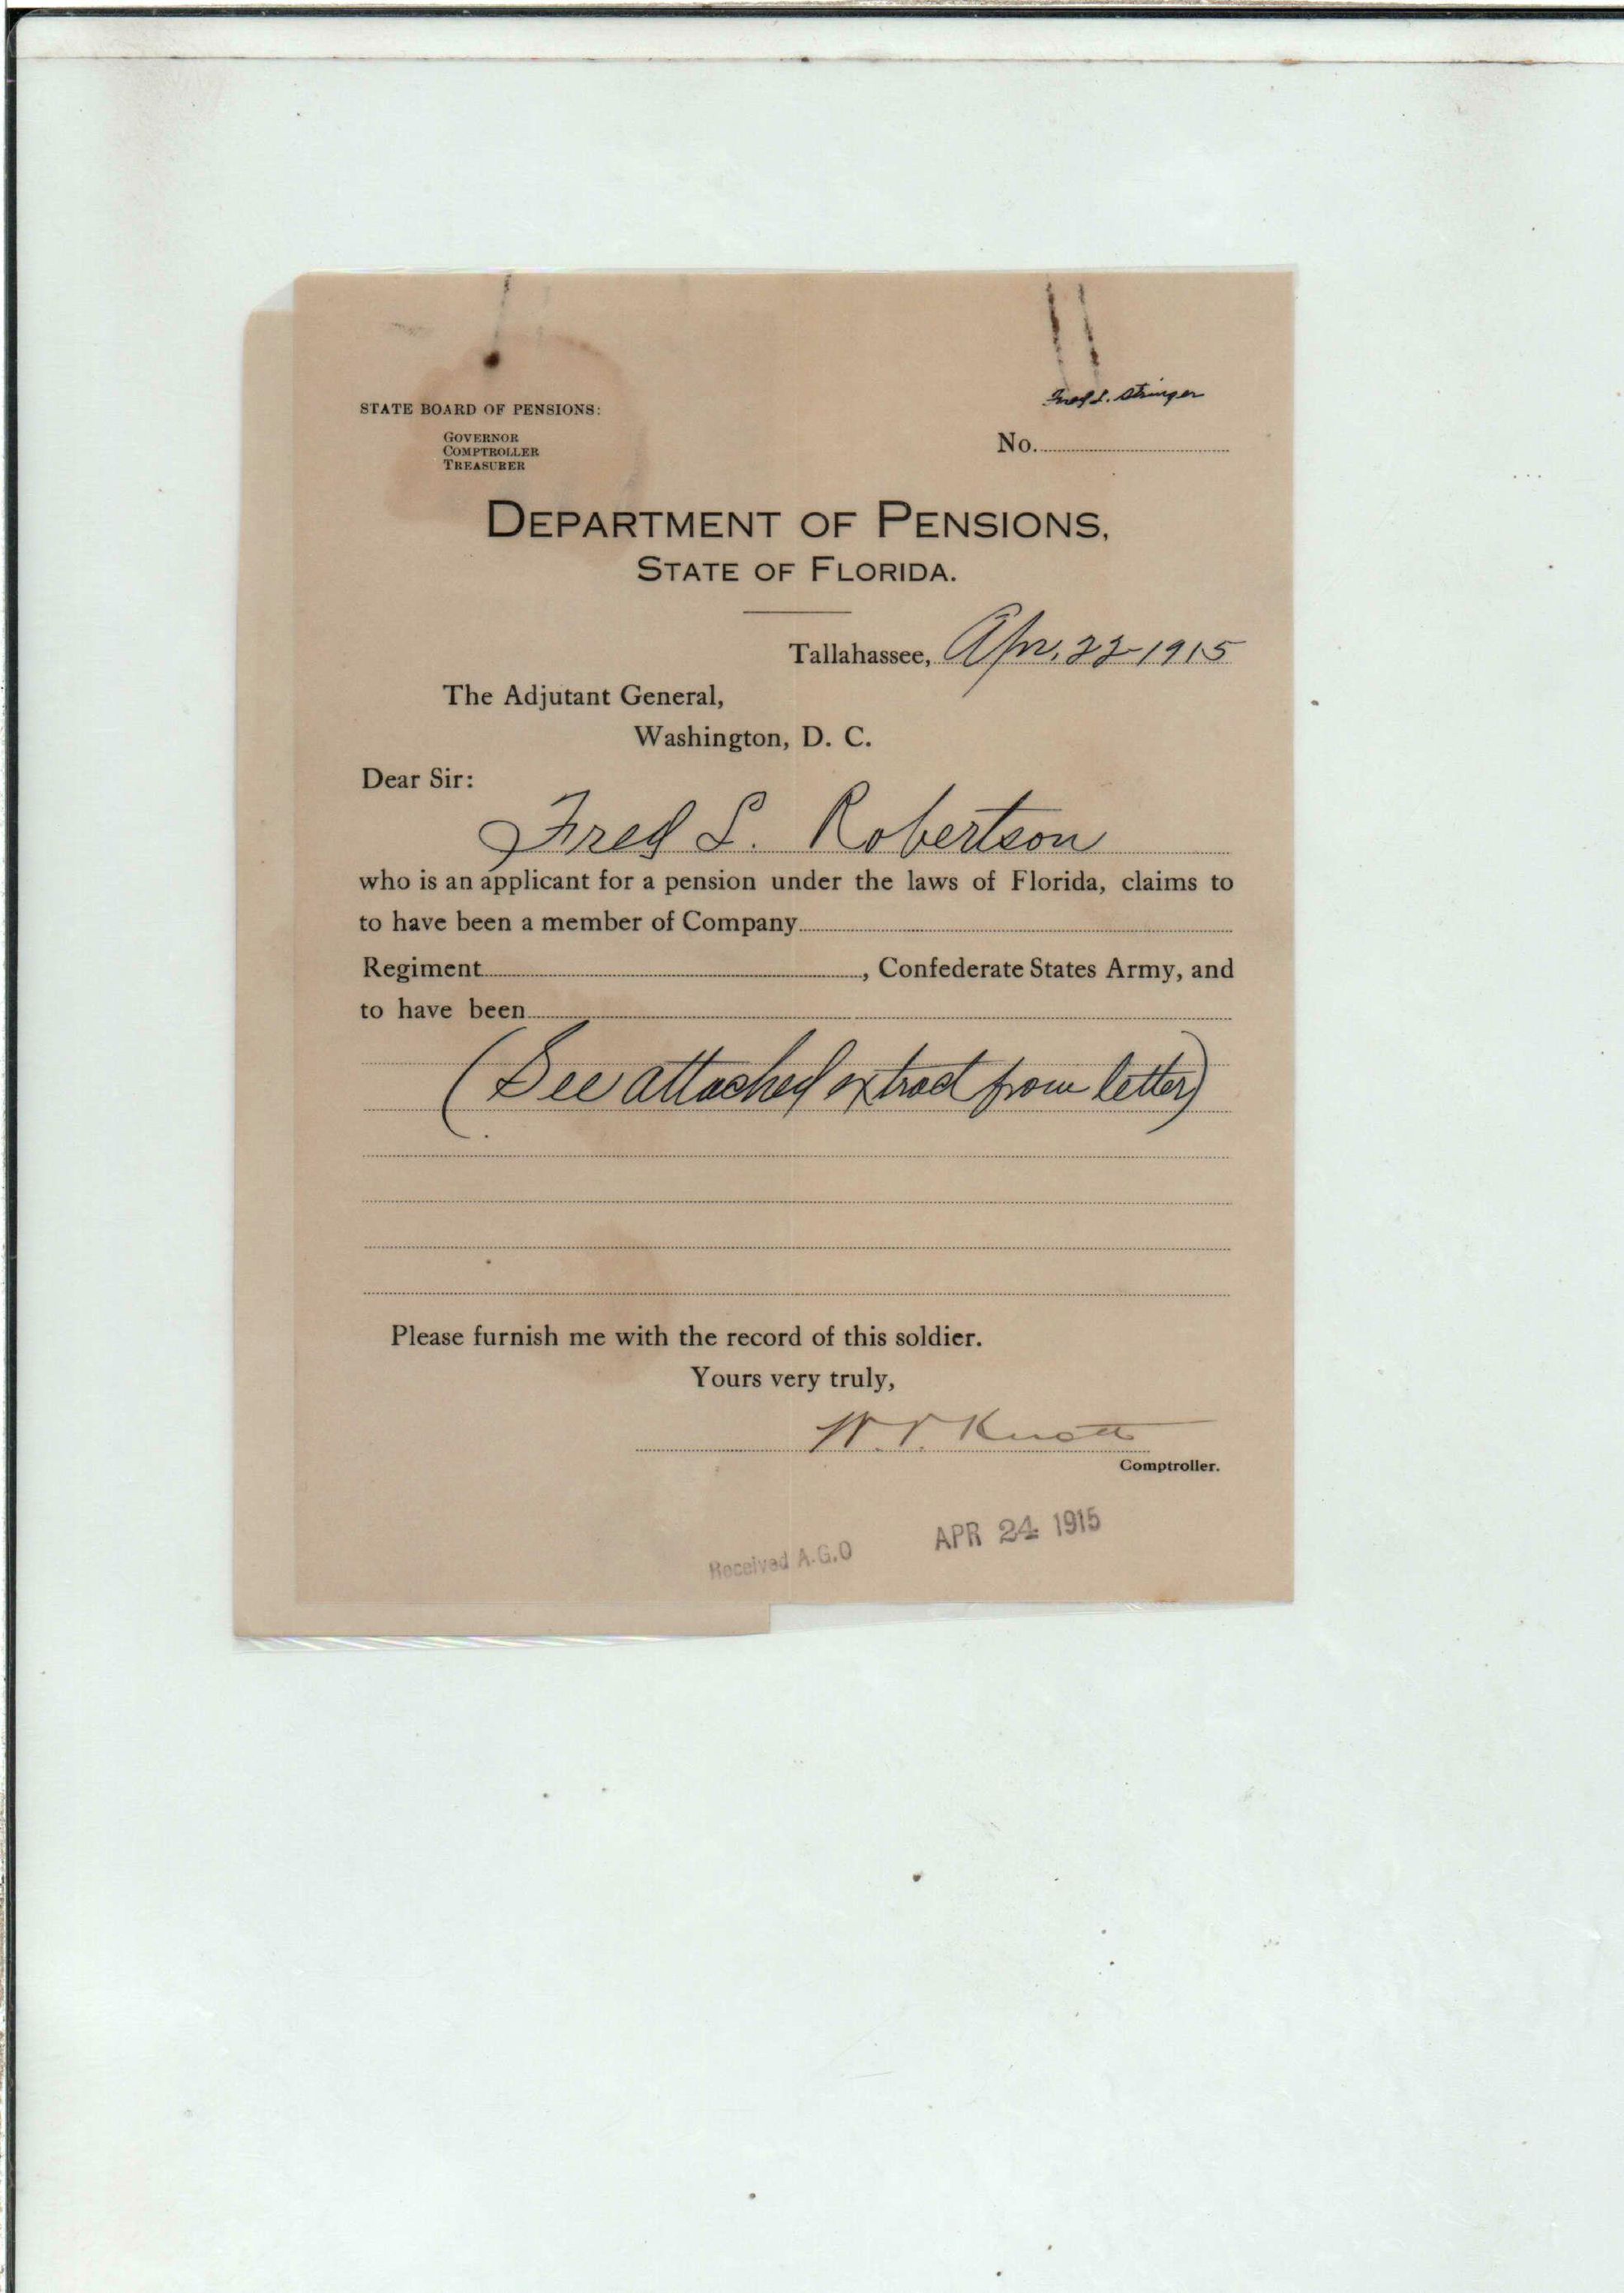 Fred L. Stringer
STATE BOARD OF PENSIONS:
GOVERNOR
COMPTROLLER
TREASURER
No.
DEPARTMENT OF PENSIONS,
STATE OF FLORIDA.
Tallahassee, Apr. 22-1915
The Adjutant General,
Washington, D. C.
Dear Sir:
Fred L. Robertson
who is an applicant for a pension under the laws of Florida, claims to
to have been a member of Company
Regiment , Confederate States Army, and
to have been
(See attached extract from letter)
Please furnish me with the record of this soldier.
Yours very truly,
W. V. Knott
Comptroller.
APR 24 1915
Received A.G.O